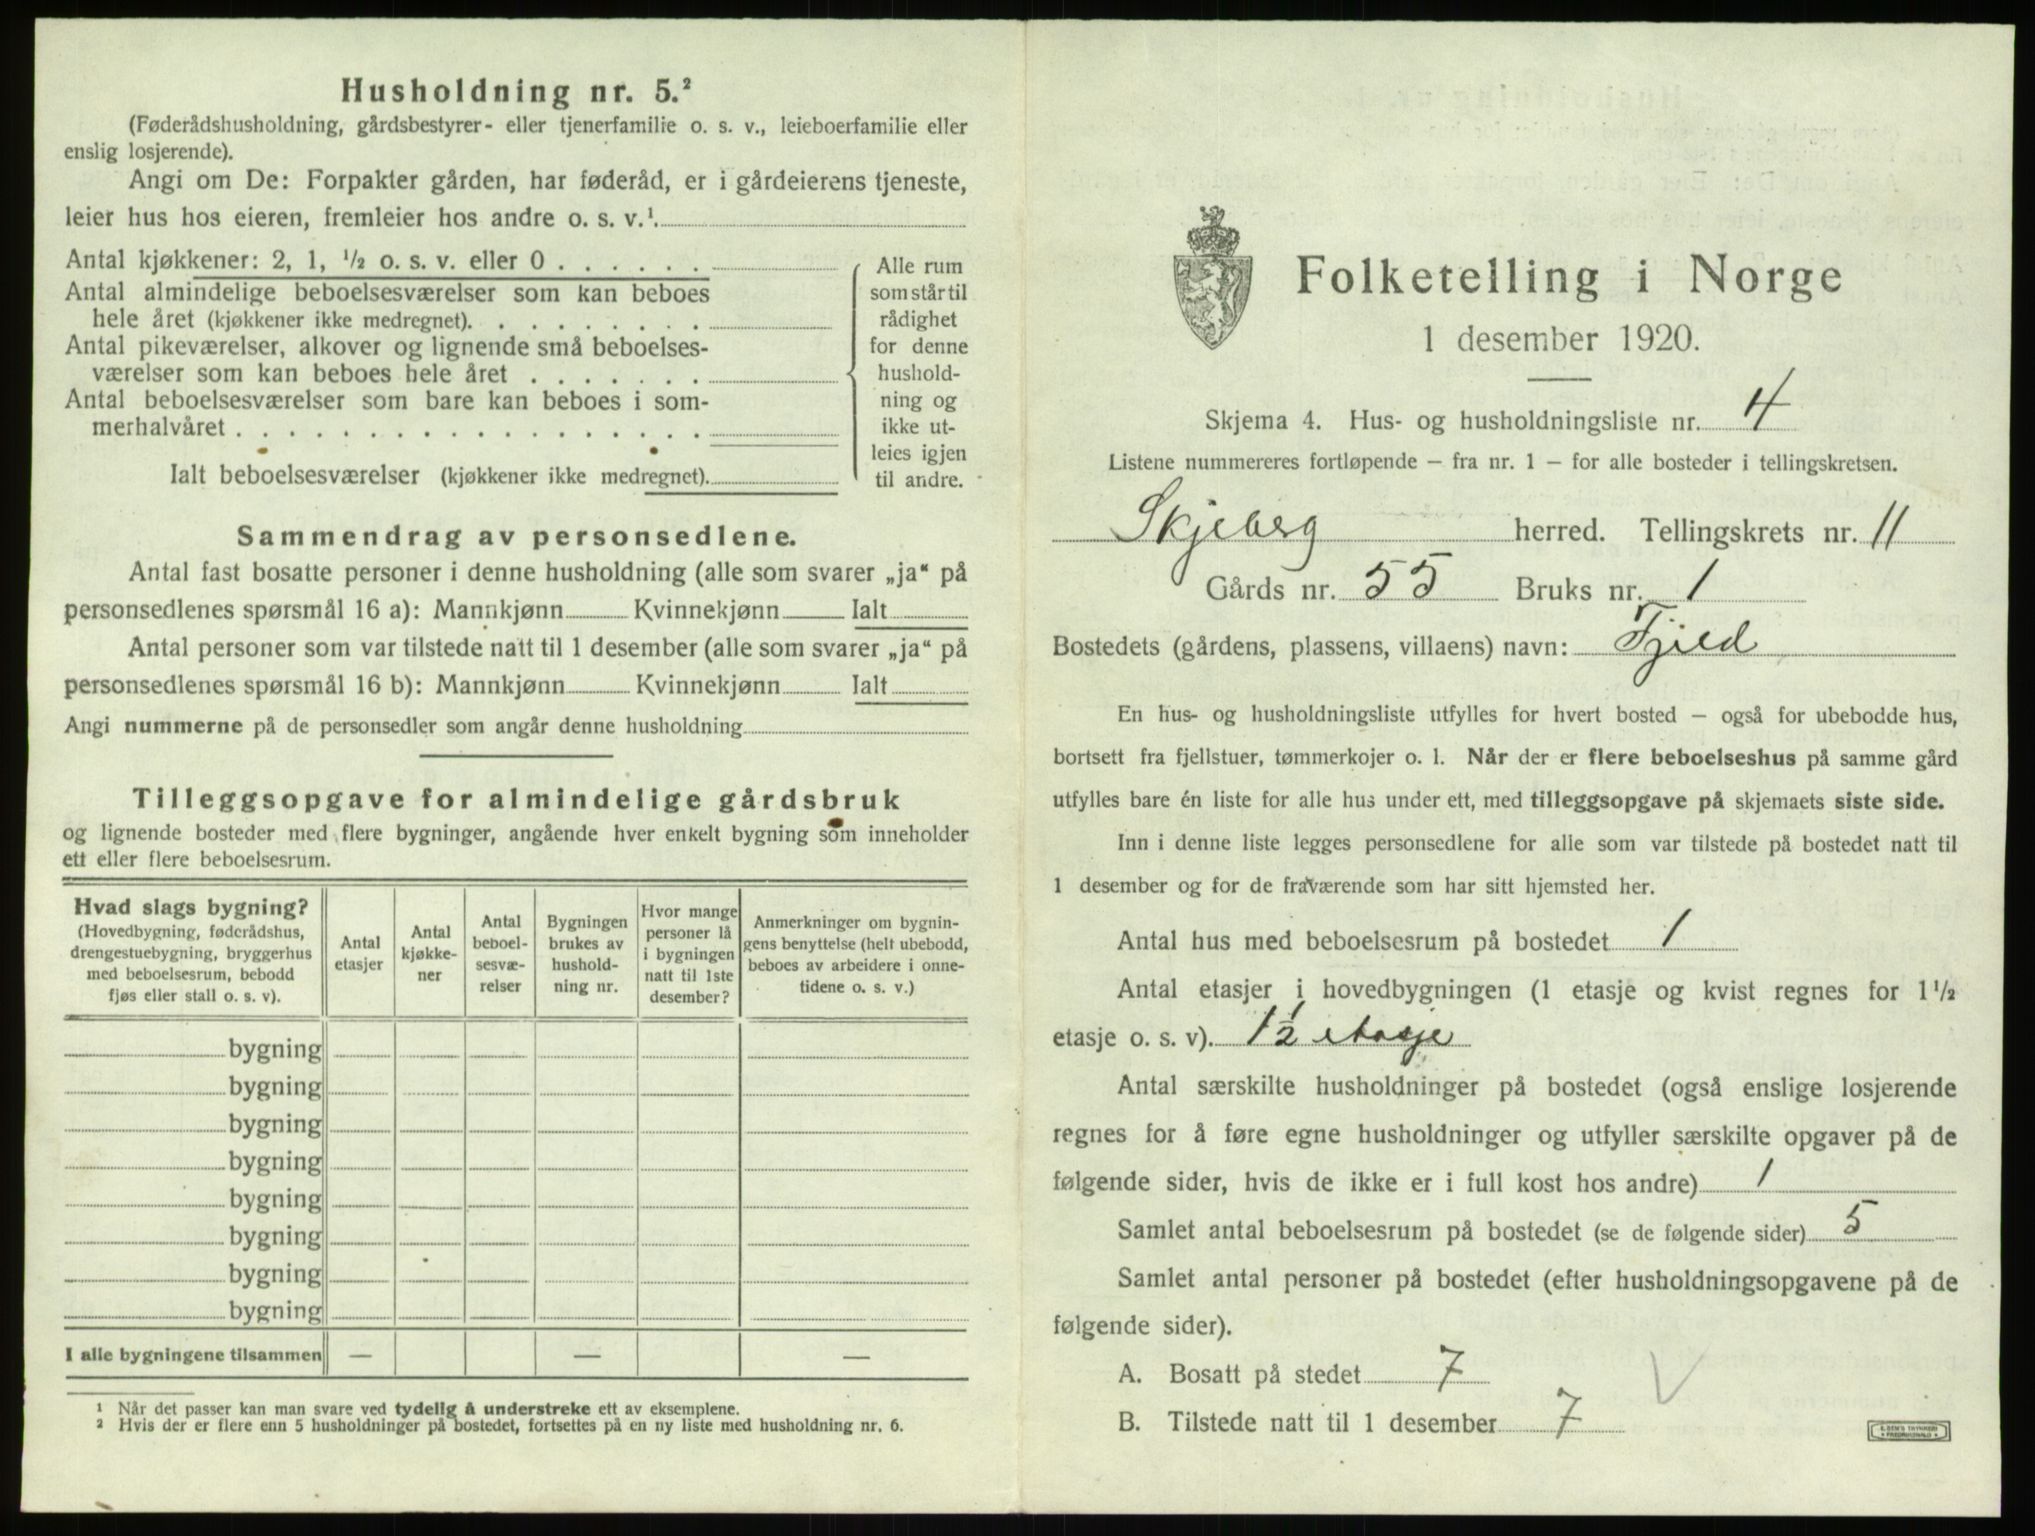 Husholdning nr. 5.²
(Føderådshusholdning, gårdsbestyrer- eller tjenerfamilie o. s. v., leieboerfamilie eller
enslig losjerende).
Angi om De: Forpakter gården, har føderåd, er i gårdeierens tjeneste,
leier hus hos eieren, fremleier hos andre o. s. v.¹
Antal kjøkkener: 2, 1, ½ o. s. v. eller 0 . . . . . .
Antal almindelige beboelsesværelser som kan beboes
hele året (kjøkkener ikke medregnet). . . . . . . . .
Antal pikeværelser, alkover og lignende små beboelses-
værelser som kan beboes hele året . . . . . . .
Antal beboelsesværelser som bare kan beboes i som-
merhalvåret . . . . . . . . . . . . . . . . . .
Ialt beboelsesværelser (kjøkkener ikke medregnet).
Alle rum
som står til
rådighet
for denne
hushold-
ning og
ikke ut-
leies igjen
til andre.
Sammendrag av personsedlene.
Antal fast bosatte personer i denne husholdning (alle som svarer „ja“ på
personsedlenes spørsmål 16 a): Mannkjønn Kvinnekjønn Ialt
Antal personer som var tilstede natt til 1 desember (alle som svarer „ja“ på
personsedlenes spørsmål 16 b): Mannkjønn Kvinnekjønn Ialt
Angi nummerne på de personsedler som angår denne husholdning
Tilleggsopgave for almindelige gårdsbruk
og lignende bosteder med flere bygninger, angående hver enkelt bygning som inneholder
ett eller flere beboelsesrum.
Hvad slags bygning?
(Hovedbygning, føderådshus,
drengestuebygning, bryggerhus
med beboelsesrum, bebodd
fjøs eller stall o. s. v).
Antal
etasjer
Antal
kjøkke-
ner
Antal
beboel-
sesvæ-
relser
Bygningen
brukes av
hushold-
ning nr.
Hvor mange
personer lå
i bygningen
natt til 1ste
desember?
Anmerkninger om bygnin-
gens benyttelse (helt ubebodd,
beboes av arbeidere i onne-
tidene o. s. v.)
bygning
bygning
bygning
bygning
bygning
bygning
bygning
bygning
I alle bygningene tilsammen — — —
¹ Når det passer kan man svare ved tydelig å understreke ett av eksemplene.
² Hvis der er flere enn 5 husholdninger på bostedet, fortsettes på en ny liste med husholdning nr. 6.
Folketelling i Norge
1 desember 1920.
Skjema 4. Hus- og husholdningsliste nr. 4
Listene nummereres fortløpende – fra nr. 1 – for alle bosteder i tellingskretsen.
Skjeberg herred. Tellingskrets nr. 11
Gårds nr. 55 Bruks nr. 1
Bostedets (gårdens, plassens, villaens) navn: Fjeld
En hus- og husholdningsliste utfylles for hvert bosted – også for ubebodde hus,
bortsett fra fjellstuer, tømmerkojer o. l. Når der er flere beboelseshus på samme gård
utfylles bare én liste for alle hus under ett, med tilleggsopgave på skjemaets siste side.
Inn i denne liste legges personsedlene for alle som var tilstede på bostedet natt til
1 desember og for de fraværende som har sitt hjemsted her.
Antal hus med beboelsesrum på bostedet 1
Antal etasjer i hovedbygningen (1 etasje og kvist regnes for 1½
etasje o. s. v). 1½ etasje
Antal særskilte husholdninger på bostedet (også enslige losjerende
regnes for å føre egne husholdninger og utfyller særskilte opgaver på de
følgende sider, hvis de ikke er i full kost hos andre) 1
Samlet antal beboelsesrum på bostedet (se de følgende sider) 5
Samlet antal personer på bostedet (efter husholdningsopgavene på de
følgende sider).
A. Bosatt på stedet 7
B. Tilstede natt til 1 desember 7